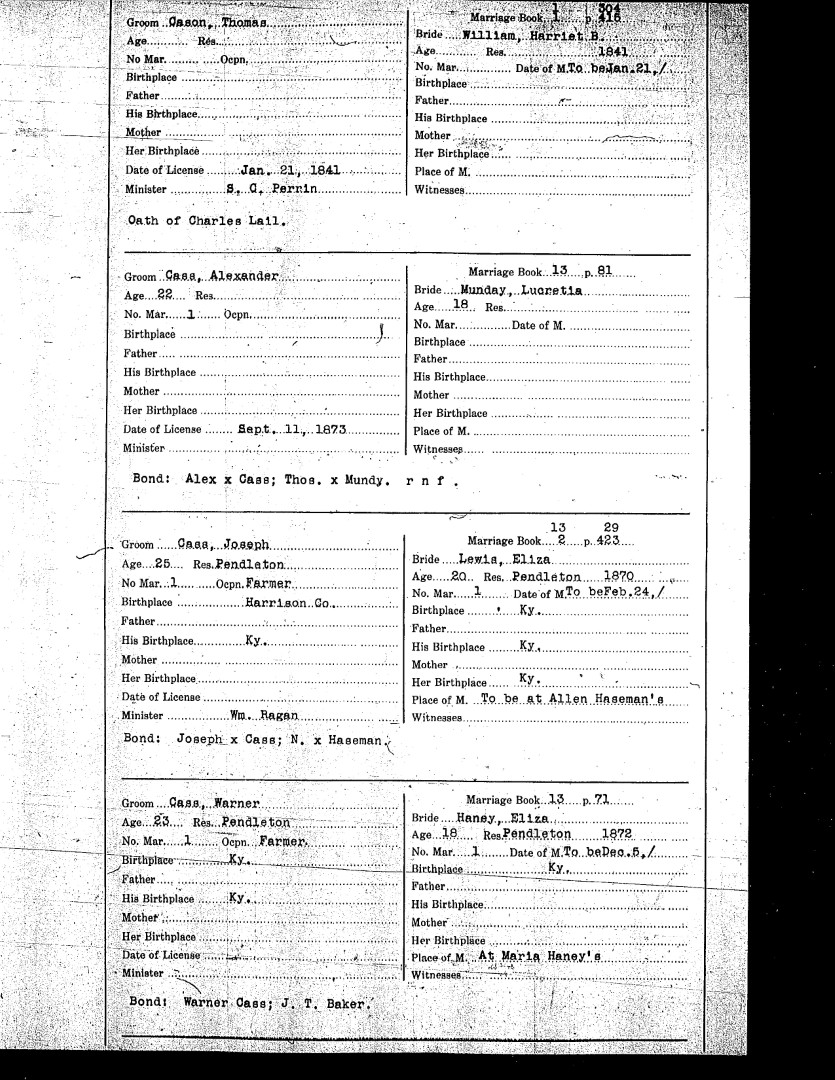 Groom Cason, Thomas
Age Res.
No Mar. Ocpn.
Birthplace
Father
His Birthplace
Mother
Her Birthplace
Date of License Jan. 21, 1841
Minister S. C. Perrin
Marriage Book 1 p.
Bride William, Harriet B.
Age Res. 1841
No. Mar. Date of M. To be Jan. 21, /
Birthplace
Father
His Birthplace
Mother
Her Birthplace
Place of M.
Witnesses
Oath of Charles Lail.
Groom Cass, Alexander
Age 22 Res.
No. Mar. 1 Ocpn.
Birthplace
Father
His Birthplace
Mother
Her Birthplace
Date of License Sept. 11, 1873
Minister
Marriage Book 13 p. 81
Bride Munday, Lucretia
Age 18 Res.
No. Mar. Date of M.
Birthplace
Father
His Birthplace
Mother
Her Birthplace
Place of M.
Witnesses
Bond: Alex x Cass; Thos. x Mundy. r n f .
Groom Cass, Joseph
Age 25 Res. Pendleton
No Mar. 1 Ocpn. Farmer
Birthplace Harrison Co.
Father
His Birthplace Ky.
Mother
Her Birthplace
Date of License
Minister Wm. Ragan
13 29
Marriage Book 2 p. 423
Bride Lewis, Eliza
Age 20 Res. Pendleton 1870
No. Mar. 1 Date of M. To be Feb. 24, /
Birthplace Ky.
Father
His Birthplace Ky.
Mother
Her Birthplace Ky.
Place of M. To be at Allen Haseman's
Witnesses
Bond: Joseph x Cass; N. x Haseman.
Groom Cass, Warner
Age 23 Res. Pendleton
No. Mar. 1 Ocpn. Farmer.
Birthplace Ky.
Father
His Birthplace Ky.
Mother
Her Birthplace
Date of License
Minister
Marriage Book 13 p. 71
Bride Haney, Eliza
Age 18 Res. Pendleton 1872
No. Mar. 1 Date of M. To be Dec. 5, /
Birthplace Ky.
Father
His Birthplace
Mother
Her Birthplace
Place of M. At Maria Haney's
Witnesses
Bond: Warner Cass; J. T. Baker.